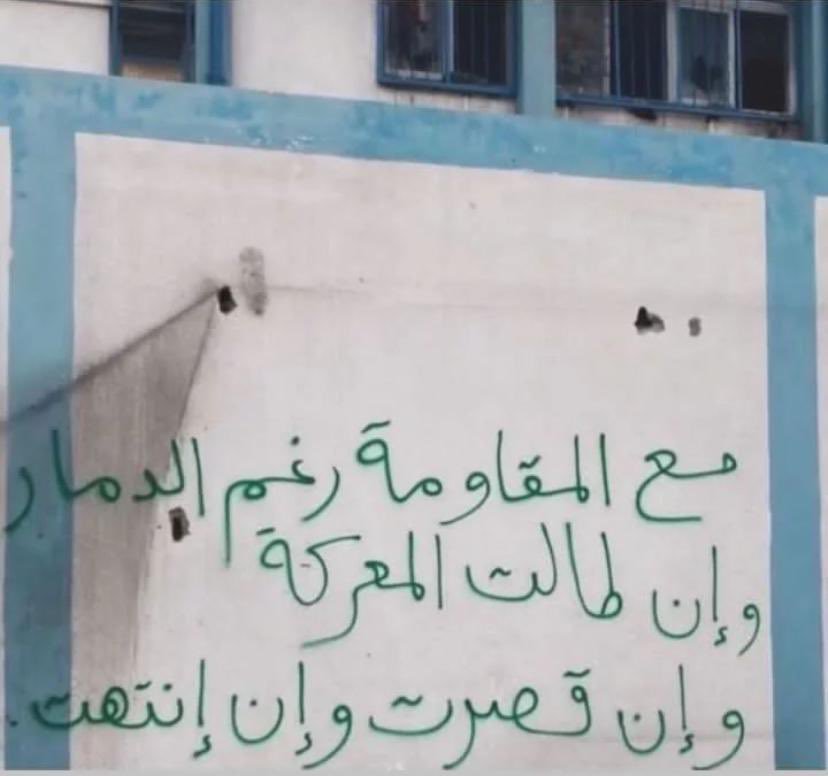 مع المقاومة رغم الدمار
وإن طالت المعركة
وإن قصرت وإن إنتهت.